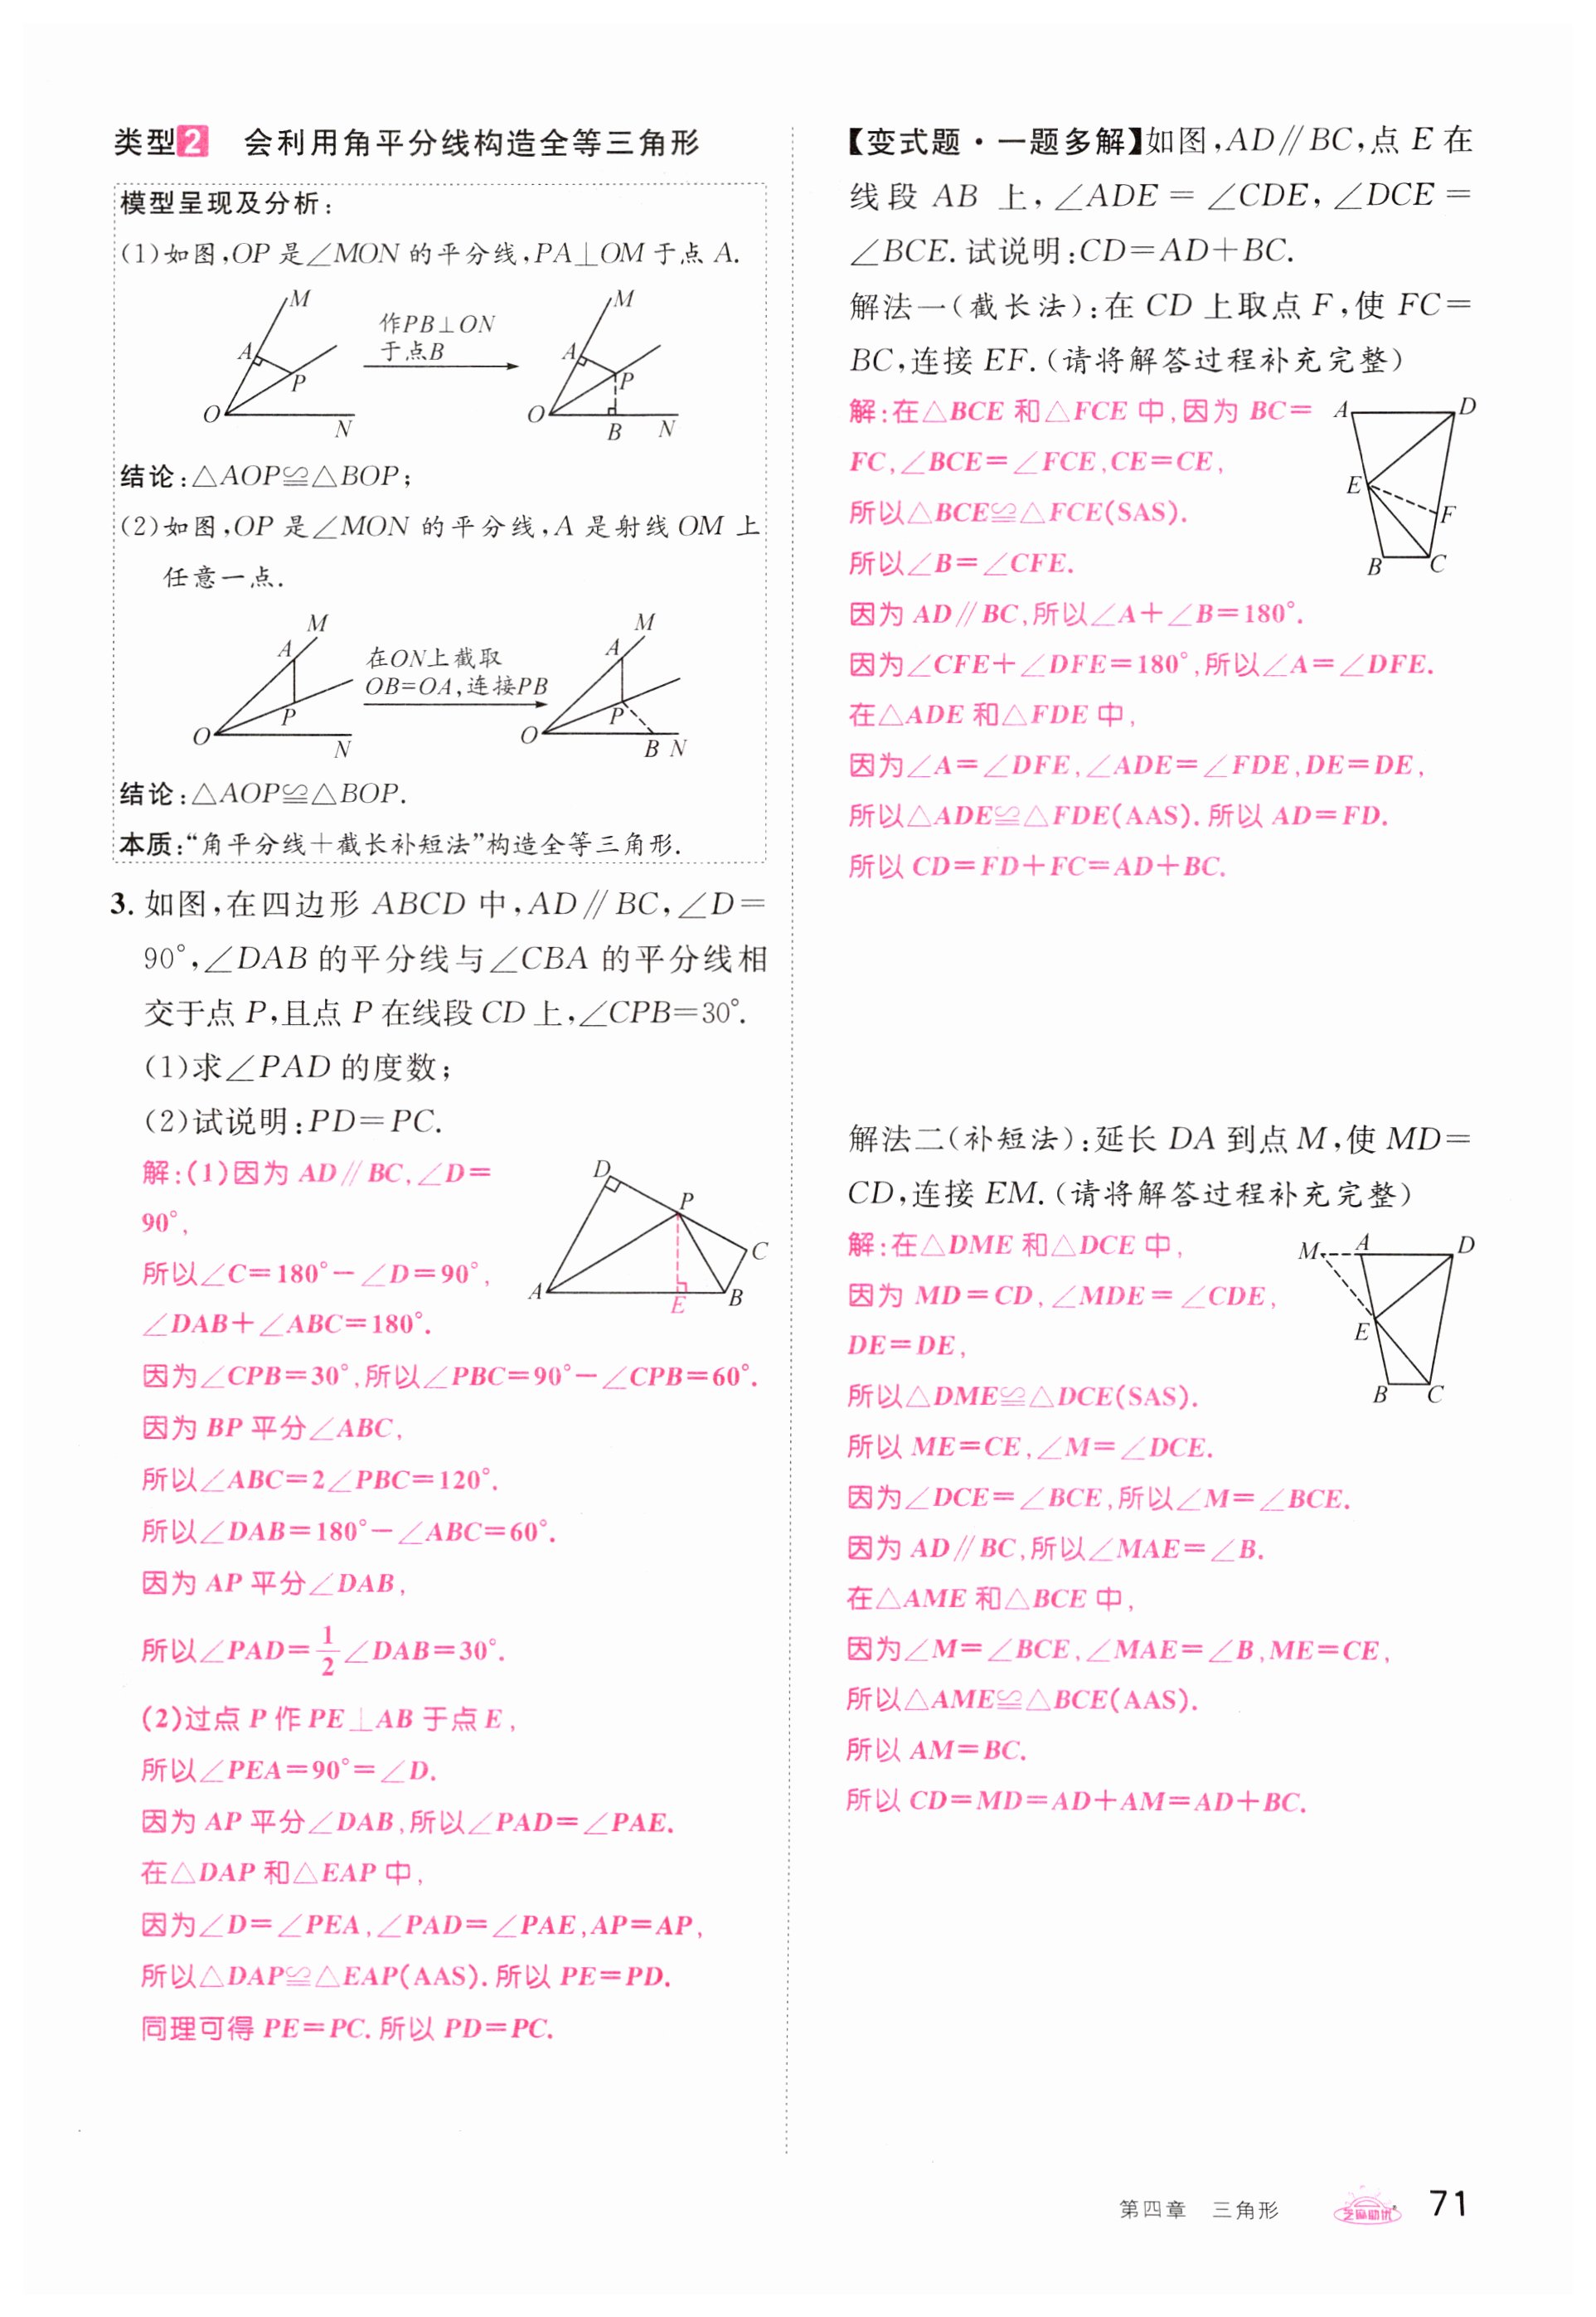 类型2 会利用角平分线构造全等三角形
模型呈现及分析:
(1)如图,OP是∠MON的平分线,PA⊥OM于点A.
M
A
P
O
N
作PB⊥ON
于点B
M
A
P
O
B
N
结论:△AOP≌△BOP;
(2)如图,OP是∠MON的平分线,A是射线OM上
任意一点.
M
A
P
O
N
在ON上截取
OB=OA,连接PB
M
A
P
O
B
N
结论:△AOP≌△BOP.
本质:“角平分线+截长补短法”构造全等三角形.
3. 如图,在四边形ABCD中,AD∥BC,∠D=
90°,∠DAB的平分线与∠CBA的平分线相
交于点P,且点P在线段CD上,∠CPB=30°.
(1)求∠PAD的度数;
(2)试说明:PD=PC.
解:(1)因为AD∥BC,∠D=
90°,
所以∠C=180°-∠D=90°,
∠DAB+∠ABC=180°.
D
P
C
A
E
B
因为∠CPB=30°,所以∠PBC=90°-∠CPB=60°.
因为BP平分∠ABC,
所以∠ABC=2∠PBC=120°.
所以∠DAB=180°-∠ABC=60°.
因为AP平分∠DAB,
所以∠PAD=1/2∠DAB=30°.
(2)过点P作PE⊥AB于点E,
所以∠PEA=90°=∠D.
因为AP平分∠DAB,所以∠PAD=∠PAE.
在△DAP和△EAP中,
因为∠D=∠PEA,∠PAD=∠PAE,AP=AP,
所以△DAP≌△EAP(AAS).所以PE=PD.
同理可得PE=PC.所以PD=PC.
【变式题·一题多解】如图,AD∥BC,点E在
线段AB上,∠ADE=∠CDE,∠DCE=
∠BCE.试说明:CD=AD+BC.
解法一(截长法):在CD上取点F,使FC=
BC,连接EF.(请将解答过程补充完整)
解:在△BCE和△FCE中,因为BC=
FC,∠BCE=∠FCE,CE=CE,
所以△BCE≌△FCE(SAS).
所以∠B=∠CFE.
A
D
E
F
B
C
因为AD∥BC,所以∠A+∠B=180°.
因为∠CFE+∠DFE=180°,所以∠A=∠DFE.
在△ADE和△FDE中,
因为∠A=∠DFE,∠ADE=∠FDE,DE=DE,
所以△ADE≌△FDE(AAS).所以AD=FD.
所以CD=FD+FC=AD+BC.
解法二(补短法):延长DA到点M,使MD=
CD,连接EM.(请将解答过程补充完整)
解:在△DME和△DCE中,
因为MD=CD,∠MDE=∠CDE,
DE=DE,
所以△DME≌△DCE(SAS).
M
A
D
E
B
C
所以ME=CE,∠M=∠DCE.
因为∠DCE=∠BCE,所以∠M=∠BCE.
因为AD∥BC,所以∠MAE=∠B.
在△AME和△BCE中,
因为∠M=∠BCE,∠MAE=∠B,ME=CE,
所以△AME≌△BCE(AAS).
所以AM=BC.
所以CD=MD=AD+AM=AD+BC.
第四章 三角形
芝麻助优
71